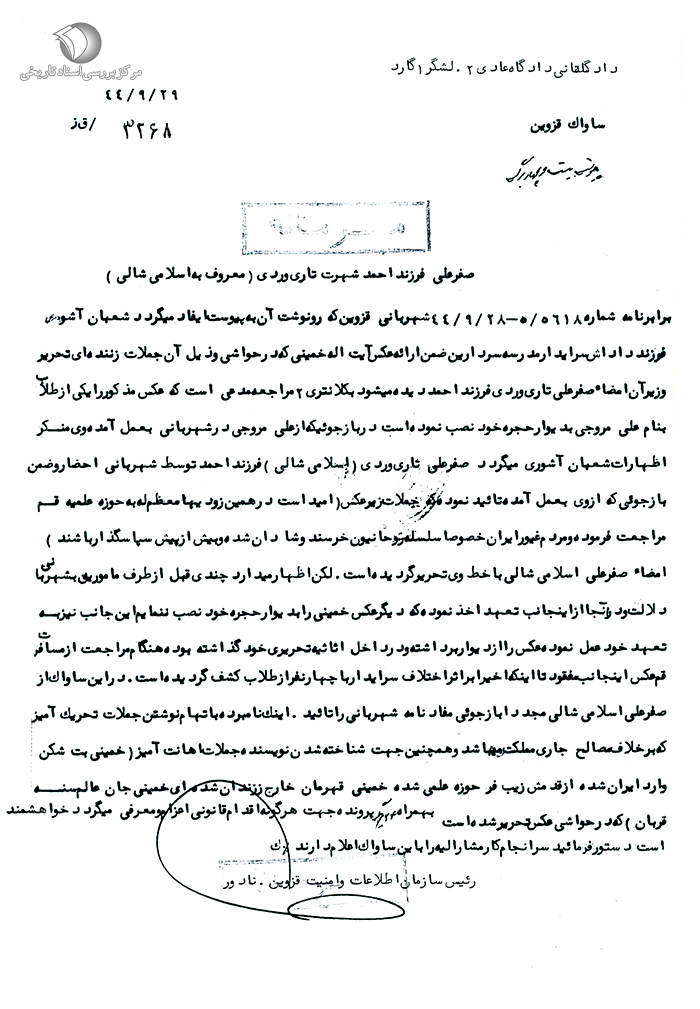 مرکز بررسی اسناد تاریخی
دادگاه عادی ۲ . لشگر ۱ گارد
۴۴/۹/۲۹
ساواک قزوین
۳۲۶۸ /ق ز
پیوست بیست و چهار برگ
صفرعلی فرزند احمد شهرت تاری وردی ( معروف به اسلامی شالی )
برابرنامه شماره ۵/۵۶۱۸-۴۴/۹/۲۸ شهربانی قزوین که رونوشت آن به پیوست ایفاد میگردد شعبان آشوری
فرزند داداش سرایدار مدرسه سردارین ضمن ارائه عکس آیت اله خمینی که در حواشی و ذیل آن جملات زننده ای تحریر
وزیرآن امضاء صفرعلی تاری وردی فرزند احمد دیده میشود بکلانتری ۲ مراجعه مدعی است که عکس مذکور را یکی از طلاب
بنام علی مروجی بدیوار حجره خود نصب نموده است در بازجوئیکه از علی مروجی در شهربانی بعمل آمده وی منکر
اظهارات شعبان آشوری میگردد صفرعلی تاری وردی ( اسلامی شالی ) فرزند احمد توسط شهربانی احضار و ضمن
بازجوئی که ازوی بعمل آمده تائید نموده که جملات زیر عکس ( امید است در همین زودیها معظم له به حوزه علمیه قم
مراجعت فرموده و مردم غیور ایران خصوصا سلسله روحانیون خرسند و شادان شده و بیش از پیش سپاسگذار باشند )
امضاء صفرعلی اسلامی شالی با خط وی تحریر گردیده است . لکن اظهار میدارد چندی قبل از طرف مامورین شهربانی
دلالت و در آنجا از اینجانب تعهد اخذ نموده که دیگر عکس خمینی را بدیوار حجره خود نصب ننمایم این جانب نیز به
تعهد خود عمل نموده عکس را از دیوار برداشته و در داخل اثاثیه تحریری خود گذاشته بوده هنگام مراجعت از مسافرت
قم عکس اینجانب مفقود تا اینکه اخیرا براثر اختلاف سرایدار با چهار نفر از طلاب کشف گردیده است . در این ساواک از
صفرعلی اسلامی شالی مجددا بازجوئی مفاد نامه شهربانی را تائید . اینک نامبرده باتهام نوشتن جملات تحریک آمیز
که برخلاف مصالح جاری مملکت میباشد و همچنین جهت شناخته شدن نویسنده جملات اهانت آمیز ( خمینی بت شکن
وارد ایران شده از قدمش زیب فر حوزه علمی شده خمینی قهرمان خارج ززندان شده ای خمینی جان عالم سنه
قربان ) که در حواشی عکس تحریر شده است بهمراه ۲۴ برگ پرونده جهت هرگونه اقدام قانونی اعزام و معرفی میگردد خواهشمند
است دستور فرمائید سرانجام کار مشارالیه را باین ساواک اعلام دارند
رئیس سازمان اطلاعات و امنیت قزوین . نادور